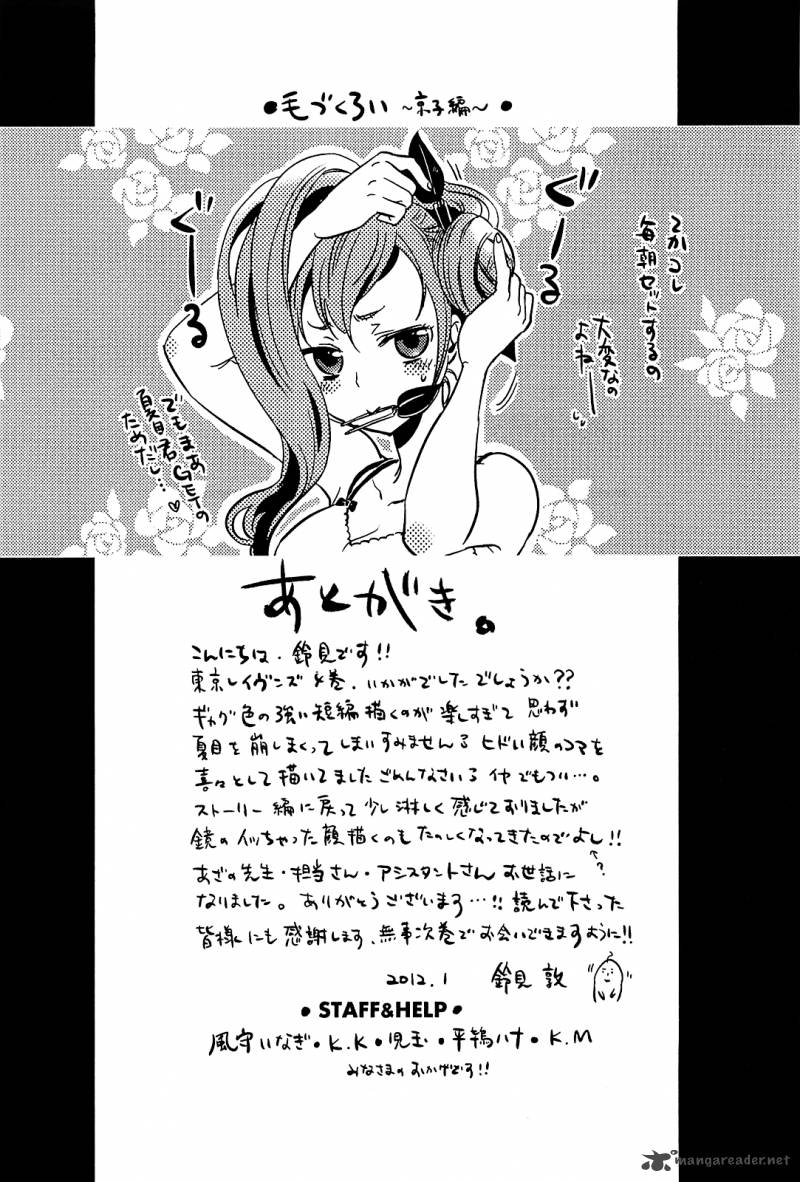 •毛づくろい ～京子編～•
てかコレ
毎朝セットするの
大変なの
よねーー
ぐーる
ぐーる
でもまあ
夏目君GETの
ためだし…♡
あとがき。
こんにちは、鈴見です!!
東京レイヴンズ 巻、いかがでしたでしょうか??
ギャグ色の強い短編描くのが楽しすぎて 思わず
夏目を崩しまくってしまいすみませんる ヒドい顔のコマを
喜々として描いてました ごめんなさいる イヤ でもつい…。
ストーリー編に戻って少し淋しく感じておりましたが
鏡のイッちゃった顔描くのもたのしくなってきたのでよし!!
↑?
あざの先生・担当さん・アシスタントさん お世話に
なりました。ありがとうございます…!! 読んで下さった
皆様にも感謝します、無事次巻でお会いできますように!!
2012.1 鈴見 敦
• STAFF&HELP •
風守いなぎ・K.K・児玉・平鴇ハナ・K.M
みなさまのおかげです!!
mangareader.net